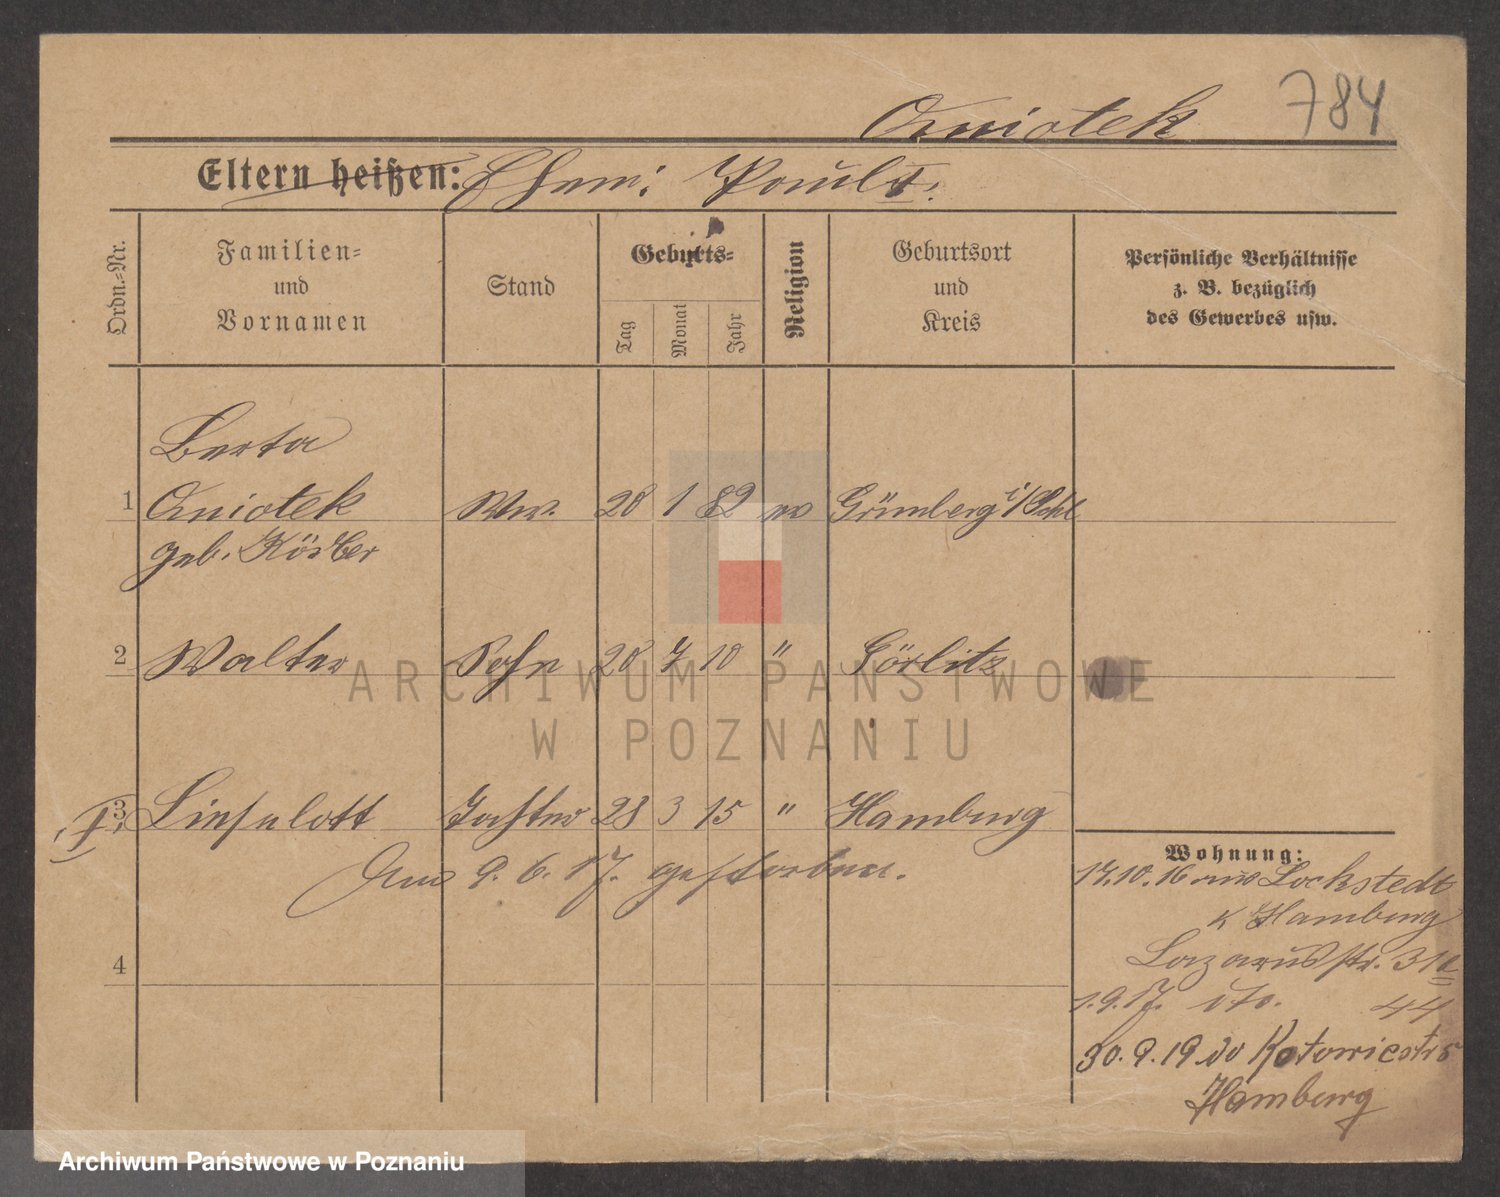 784
Qniotek
Eltern heißen: Ehem: Paul
Ordn.-Nr.
Familien-
und
Vornamen
Stand
Geburts-
Tag
Monat
Jahr
Religion
Geburtsort
und
Kreis
Persönliche Verhältnisse
z. B. bezüglich
des Gewerbes usw.
Berta
1 Qniotek Ww. 28 1 82 ev Grünberg i/Schl
geb. Köster
2 Walter Sohn 28 7 10 " Görlitz
3 Lieselott Tochter 23 3 15 " Hamburg
Am 9. 6. 17. gestorben.
4
Wohnung:
17.10.16 aus Lockstedt
Hamburg
Lazarusstr. 31a
1.9.17. dto. 44
30.9.19 Hamburg
ARCHIWUM PAŃSTWOWE
W POZNANIU
Archiwum Państwowe w Poznaniu